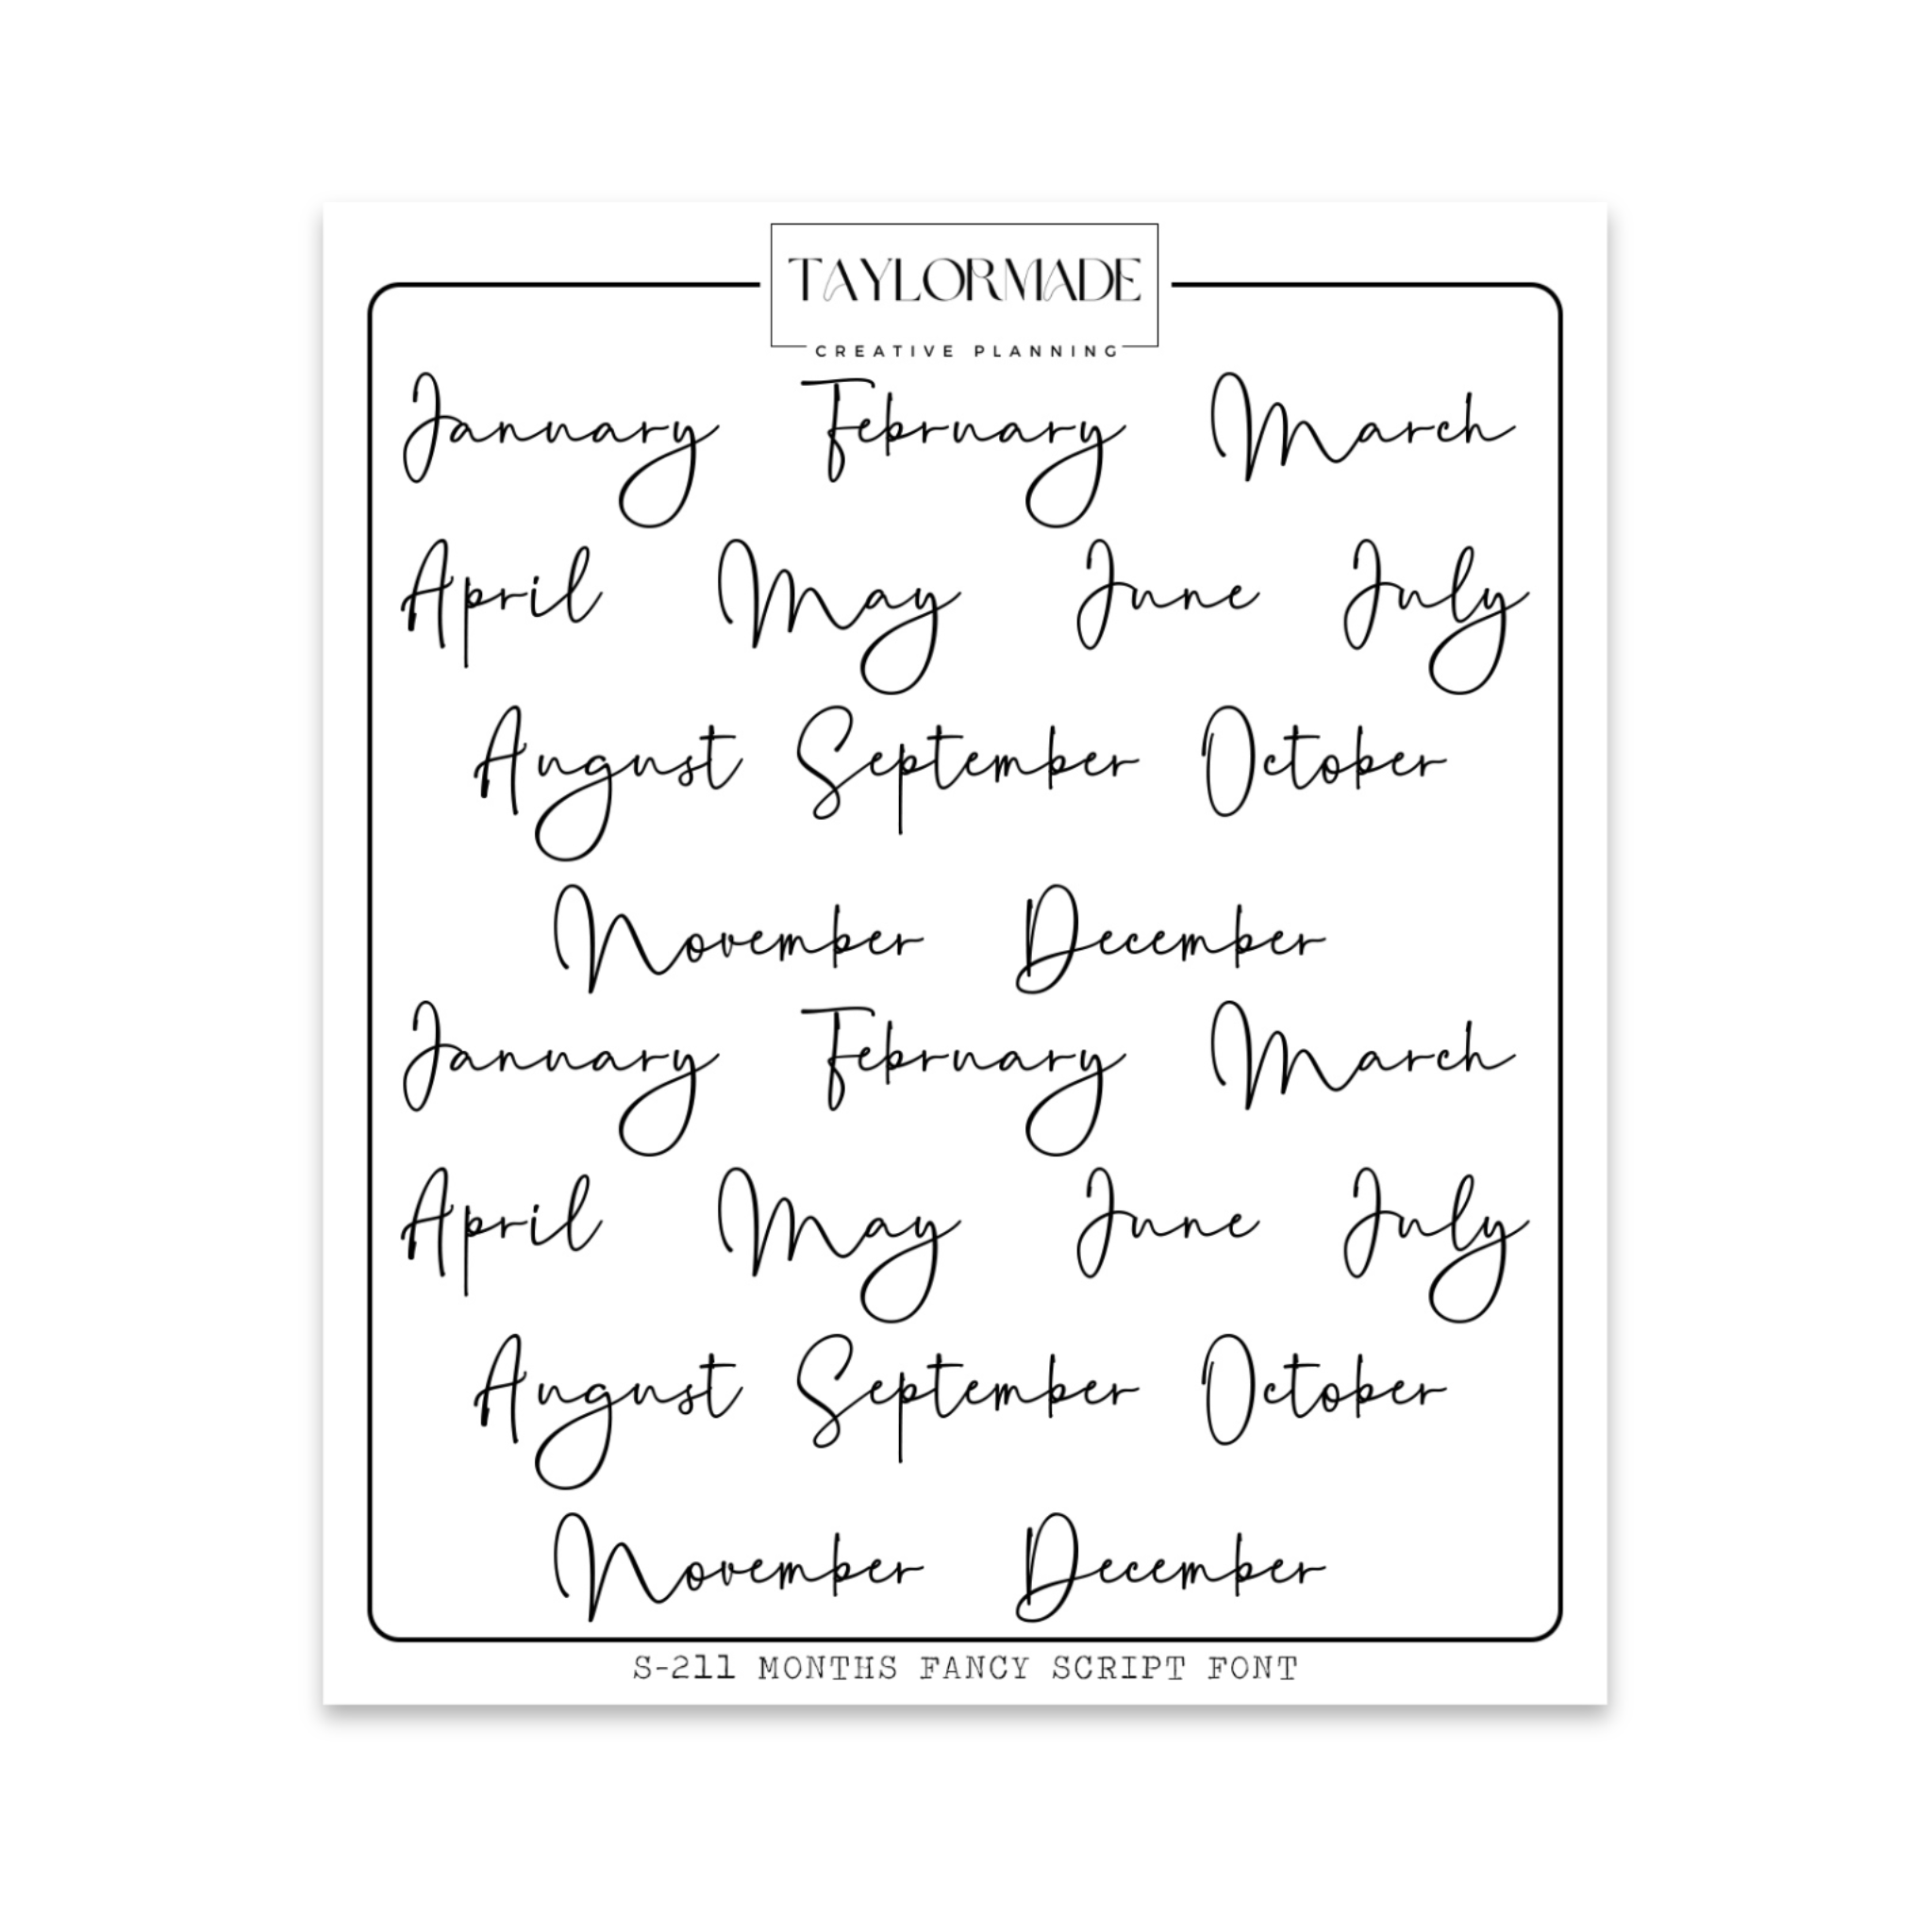 TAYLORMADE
CREATIVE PLANNING
January February March
April May June July
August September October
November December
January February March
April May June July
August September October
November December
S-211 MONTHS FANCY SCRIPT FONT